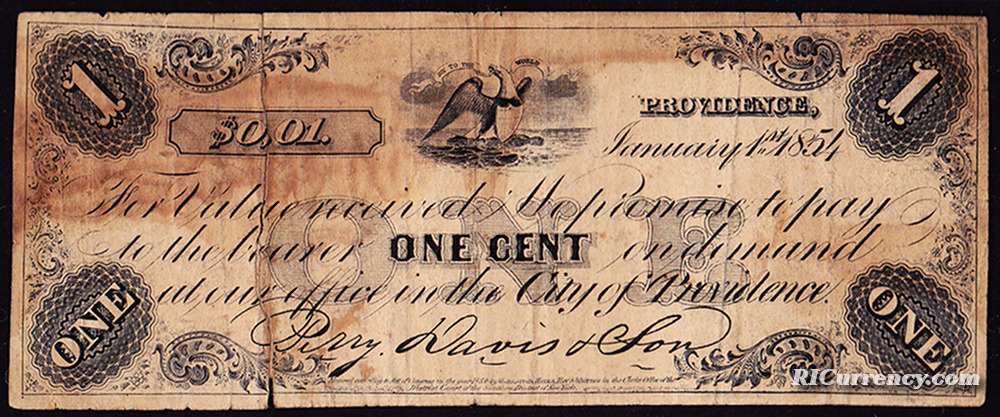 1
TO THE WORLD
1
$0.01.
PROVIDENCE,
January 1st 1854
For Value received We promise to pay
to the bearer ONE CENT on demand
ONE
at our office in the City of Providence.
ONE
ONE
Perry Davis & Son
according to Act of Congress in the year in the Clerks Office of the
District Court of the District of New York.
RICurrency.com